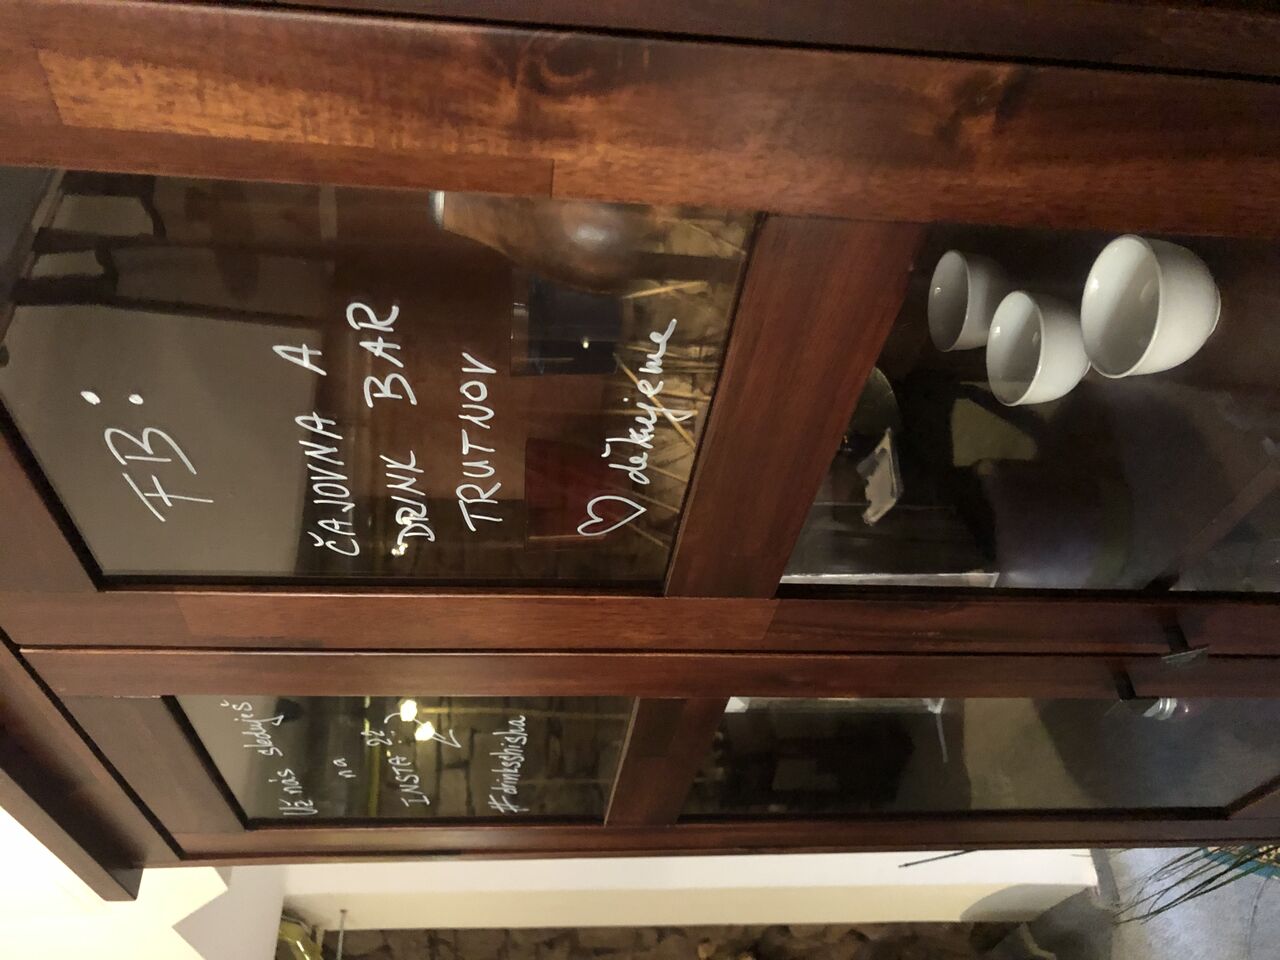 FB:
ČAJOVNA A
DRINK BAR
TRUTNOV
♡ děkujeme
Už nás sleduješ
na
INSTA ??
#drinkshisha